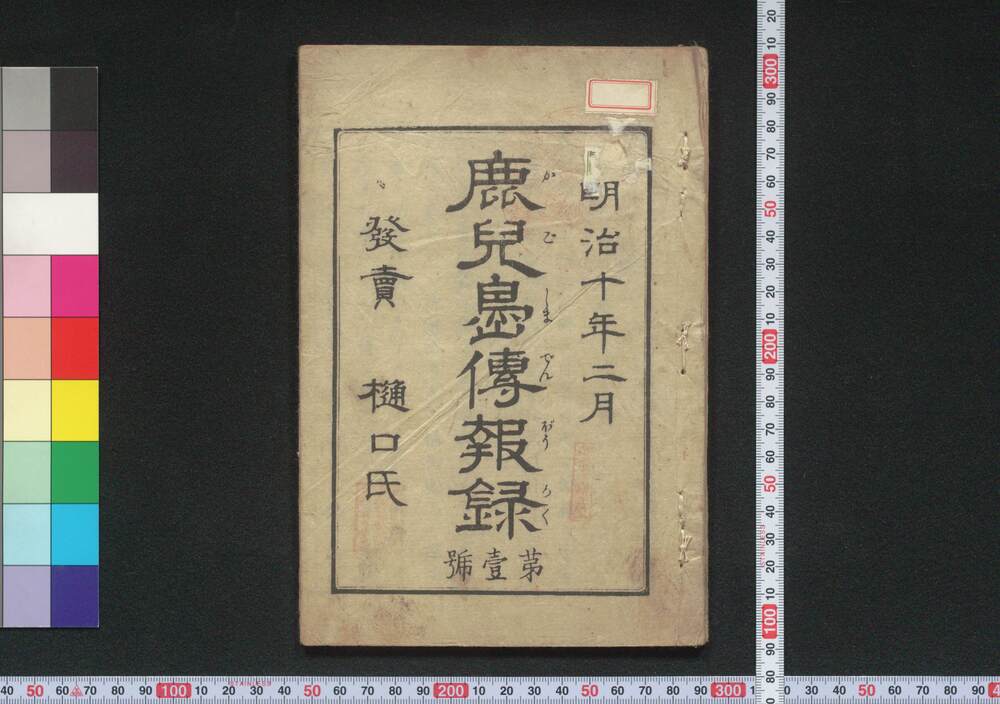 明治十年二月
鹿兒島傳報録
かごしまでんぽうろく
第壹號
發賣 樋口氏